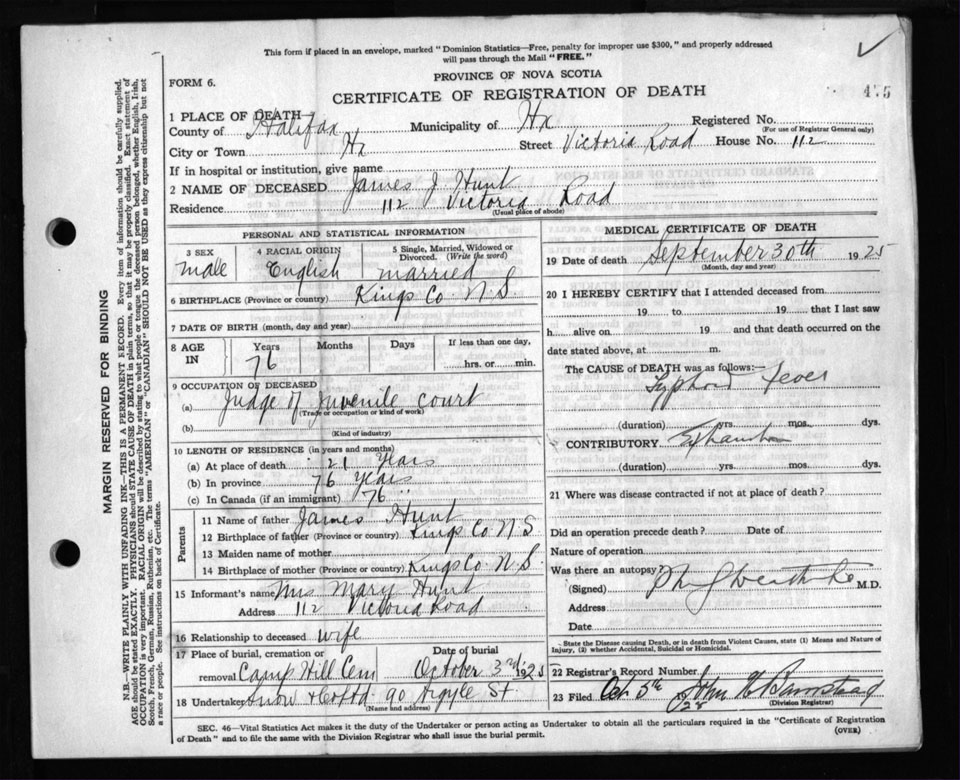 This form if placed in an envelope, marked "Dominion Statistics—Free, penalty for improper use $300," and properly addressed
will pass through the Mail "FREE."
PROVINCE OF NOVA SCOTIA
FORM 6.
CERTIFICATE OF REGISTRATION OF DEATH
475
1 PLACE OF DEATH
County of Halifax Municipality of Hx Registered No.
(For use of Registrar General only)
City or Town Hx Street Victoria Road House No. 112
If in hospital or institution, give name
2 NAME OF DECEASED James J. Hunt
Residence 112 Victoria Road
(Usual place of abode)
PERSONAL AND STATISTICAL INFORMATION
3 SEX 4 RACIAL ORIGIN 5 Single, Married, Widowed or
Divorced. (Write the word)
male English married
6 BIRTHPLACE (Province or country) Kings Co. N.S.
7 DATE OF BIRTH (month, day and year)
8 AGE IN Years Months Days If less than one day,
76 hrs. or min.
9 OCCUPATION OF DECEASED
(a) Judge of juvenile court
(Trade or occupation or kind of work)
(b)
(Kind of industry)
10 LENGTH OF RESIDENCE (in years and months)
(a) At place of death 21 Years
(b) In province 76 Years
(c) In Canada (if an immigrant) 76 "
Parents
11 Name of father James Hunt
12 Birthplace of father (Province or country) Kings Co N S
13 Maiden name of mother
14 Birthplace of mother (Province or country) Kings Co N. S.
15 Informant's name Mrs Mary Hunt
Address 112 Victoria Road
16 Relationship to deceased wife
17 Place of burial, cremation or Date of burial
removal Camp Hill Cem October 3rd 1925
18 Undertaker Snow & Co Ltd 90 Argyle St
(Name and address)
MEDICAL CERTIFICATE OF DEATH
19 Date of death September 30th 1925
(Month, day and year)
20 I HEREBY CERTIFY that I attended deceased from
19 to 19 that I last saw
h alive on 19 and that death occurred on the
date stated above, at m.
The CAUSE OF DEATH was as follows:—
Typhoid Fever
(duration) yrs. mos. dys.
CONTRIBUTORY Exhaustion
(duration) yrs. mos. dys.
21 Where was disease contracted if not at place of death?
Did an operation precede death? Date of
Nature of operation
Was there an autopsy?
(Signed) M.D.
Address
Date
State the Disease causing Death, or in death from Violent Causes, state (1) Means and Nature of
Injury, (2) whether Accidental, Suicidal or Homicidal.
22 Registrar's Record Number
23 Filed Oct 5th John H Barnstead
(Division Registrar)
SEC. 46—Vital Statistics Act makes it the duty of the Undertaker or person acting as Undertaker to obtain all the particulars required in the "Certificate of Registration
of Death" and to file the same with the Division Registrar who shall issue the burial permit.
(OVER)
MARGIN RESERVED FOR BINDING
N.B.—WRITE PLAINLY WITH UNFADING INK—THIS IS A PERMANENT RECORD. Every item of information should be carefully supplied.
AGE should be stated EXACTLY. PHYSICIANS should STATE CAUSE OF DEATH in plain terms, so that it may be properly classified. Exact statement of
OCCUPATION is very important. RACIAL ORIGIN will be described by stating to what people or tongue the deceased person belonged, whether English, Irish,
Scotch, French, German, Russian, Ruthenian, etc. The terms "AMERICAN" or "CANADIAN" SHOULD NOT BE USED as they express citizenship but not
a race or people. See instructions on back of Certificate.